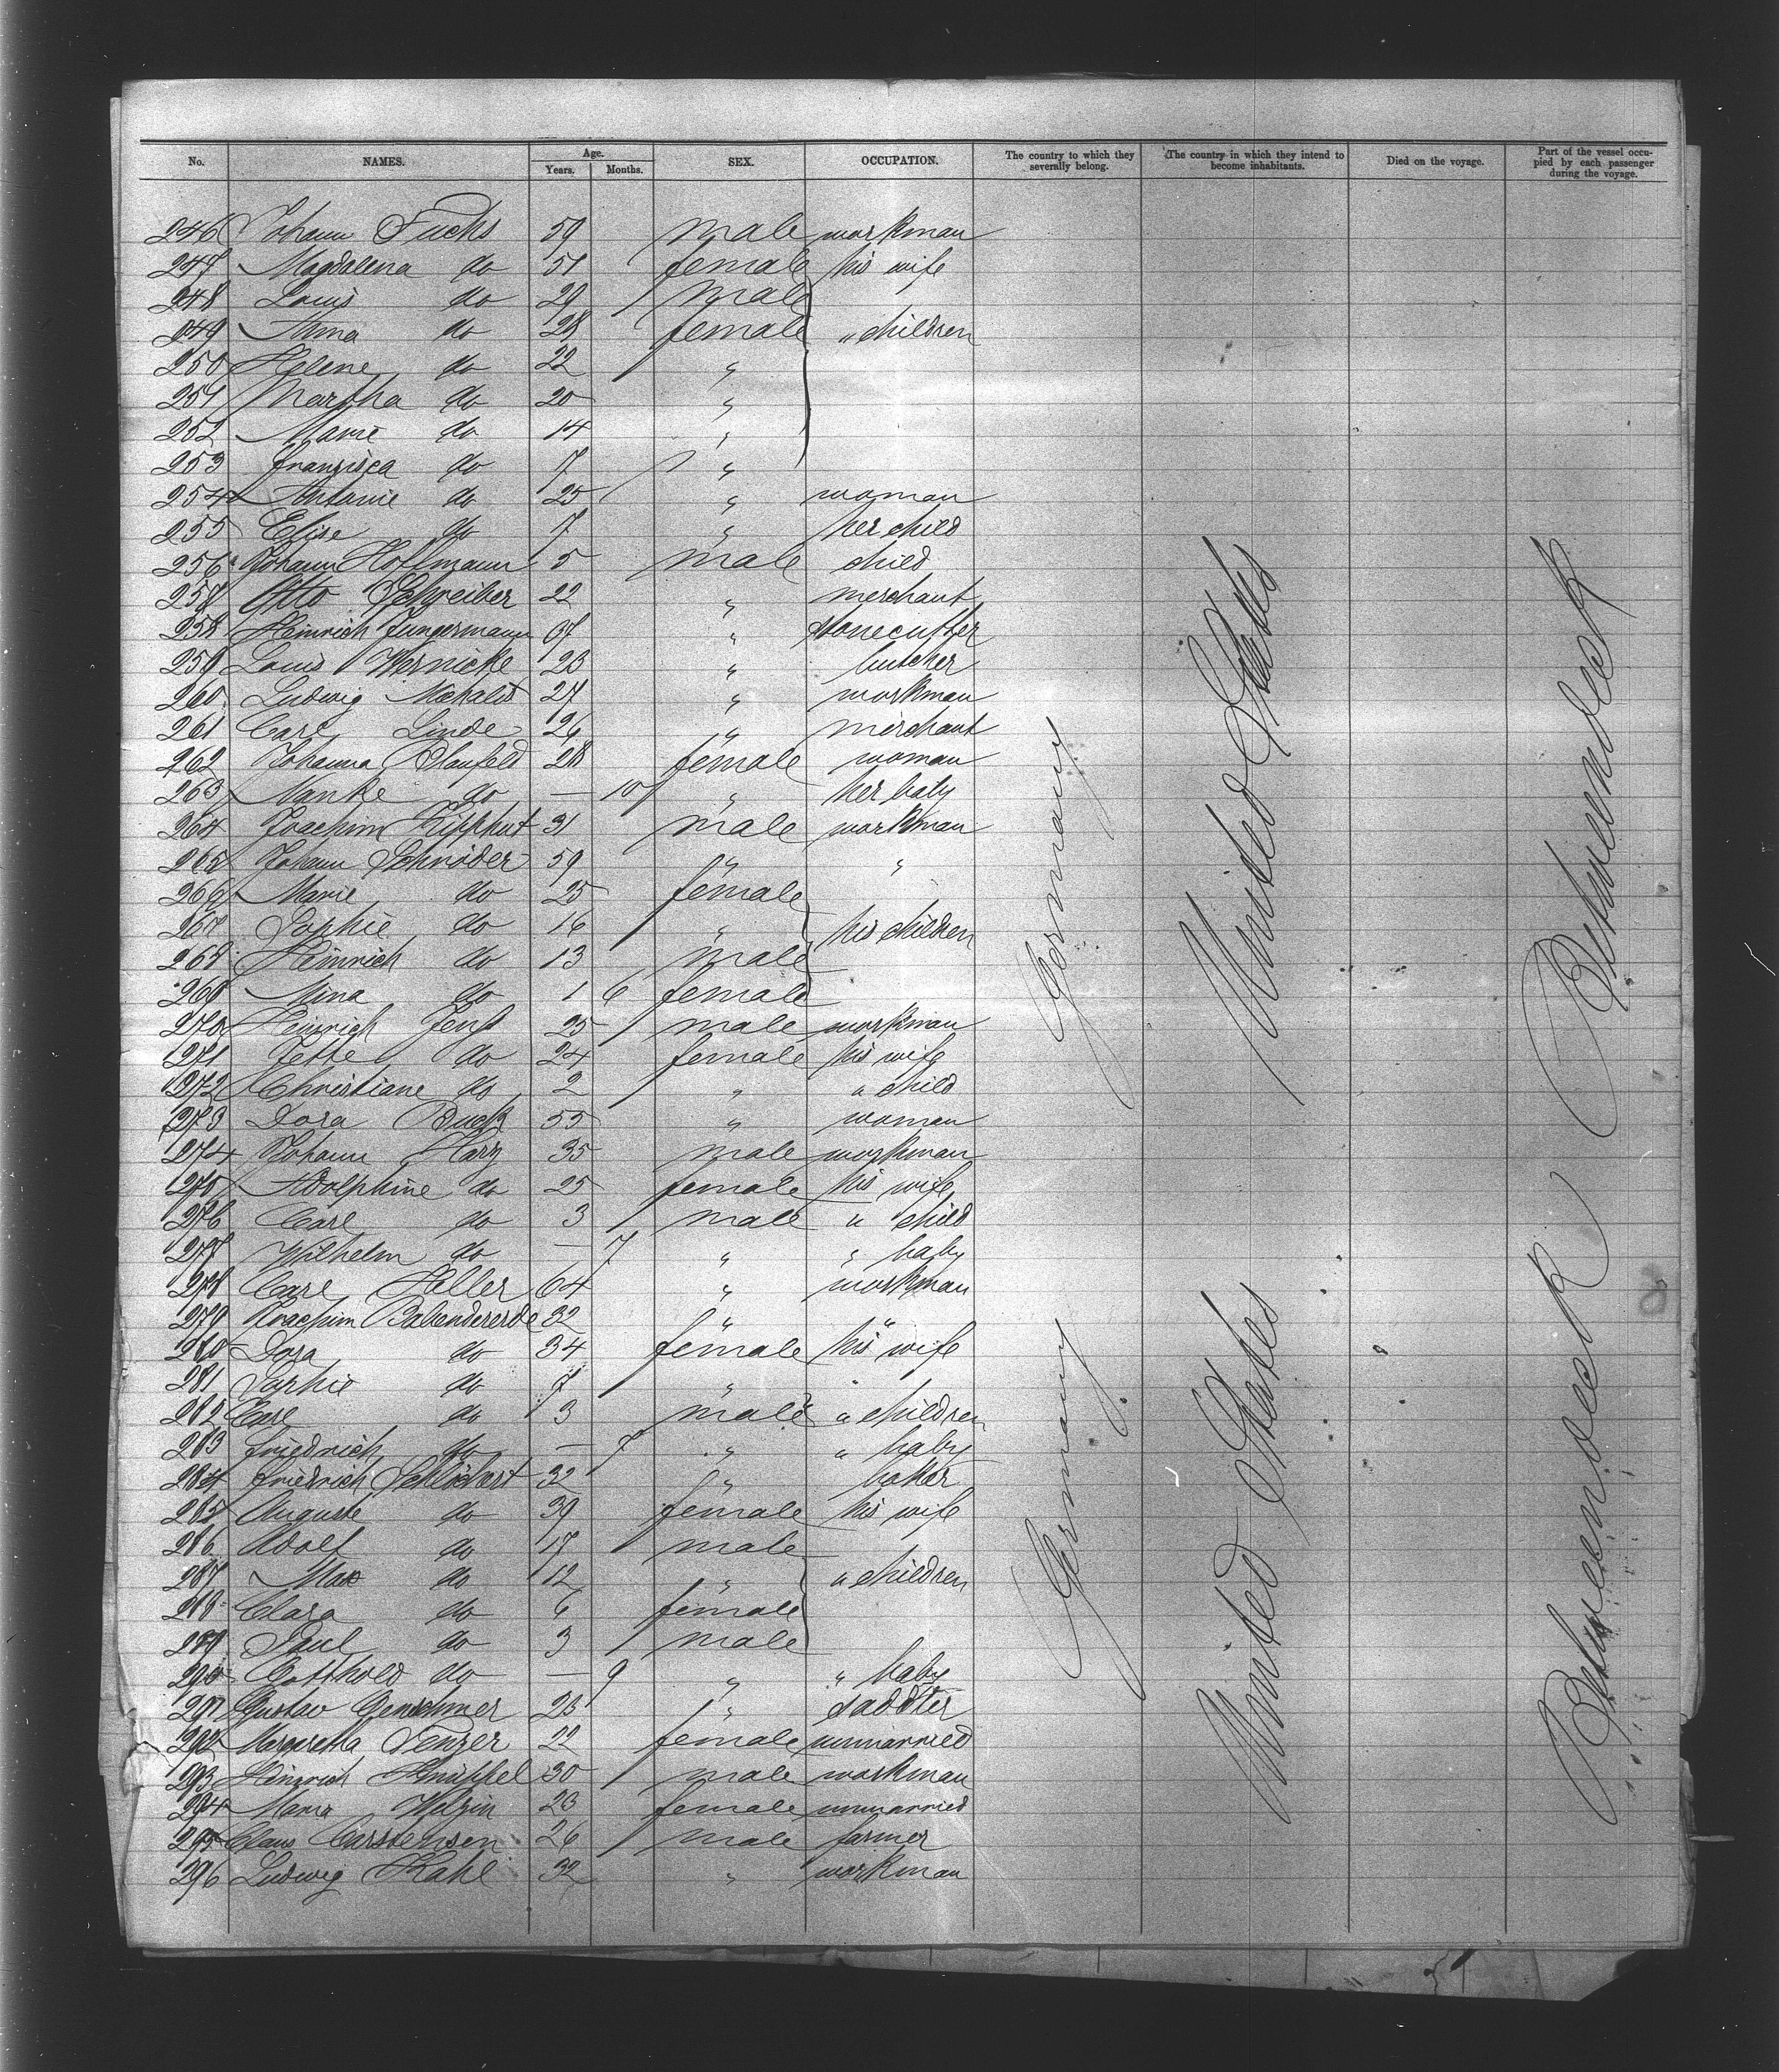 No. NAMES. Age. Years. Months. SEX. OCCUPATION. The country to which they severally belong. The country in which they intend to become inhabitants. Died on the voyage. Part of the vessel occupied by each passenger during the voyage.
246 Johann Fuchs 59 male workman
247 Magdalena do 51 female his wife
248 Louis do 29 male
249 Anna do 28 female " children
250 Helene do 22 "
251 Martha do 20 "
252 Marie do 14 "
253 Franzisca do 7 "
254 Antonie do 25 " woman
255 Elise do 7 " her child
256 Johann Hoffmann 5 male child
257 Otto Schreiber 22 " merchant
258 Heinrich Jungermann " stonecutter
259 Louis Wernicke 23 " butcher
260 Ludwig 27 " workman
261 Carl Linde 26 " merchant
262 Johanna Blaufeld 28 female woman
263 Manke do — 10 " her baby
264 Joachim Kipphut 31 male workman
265 Johann Schröder 59 " "
266 Marie do 25 female
267 Sophie do 16 " his children
268 Heinrich do 13 male
269 Mina do 1 6 female
270 Heinrich Jenss 25 male workman
271 Jette do 24 female his wife
272 Christiane do 2 " " child
273 Dora 55 " woman
274 Johann Harz 35 male workman
275 Adolphine do 25 female his wife
276 Carl do 3 male " child
277 Wilhelm do — 7 " " baby
278 Carl Heller 64 " workman
279 Joachim Babendererde 32 " "
280 Dora do 34 female his wife
281 Sophie do 7 " "
282 Carl do 3 male " children
283 Friedrich do — 7 " " baby
284 Friedrich 32 " baker
285 Auguste do 39 female his wife
286 Adolf do 17 male
287 Max do 12 " " children
288 Clara do 6 female
289 Paul do 3 male
290 Gotthold do — 9 " " baby
291 Gustav 23 " saddler
292 Margaretha Fenzer 22 female unmarried
293 Heinrich Knüppel 30 male workman
294 Maria Welzin 23 female unmarried
295 Claus Carstensen 26 male farmer
296 Ludwig Kahl 32 " workman
Germany
United States
Betweendeck
Germany
United States
Betweendeck
8